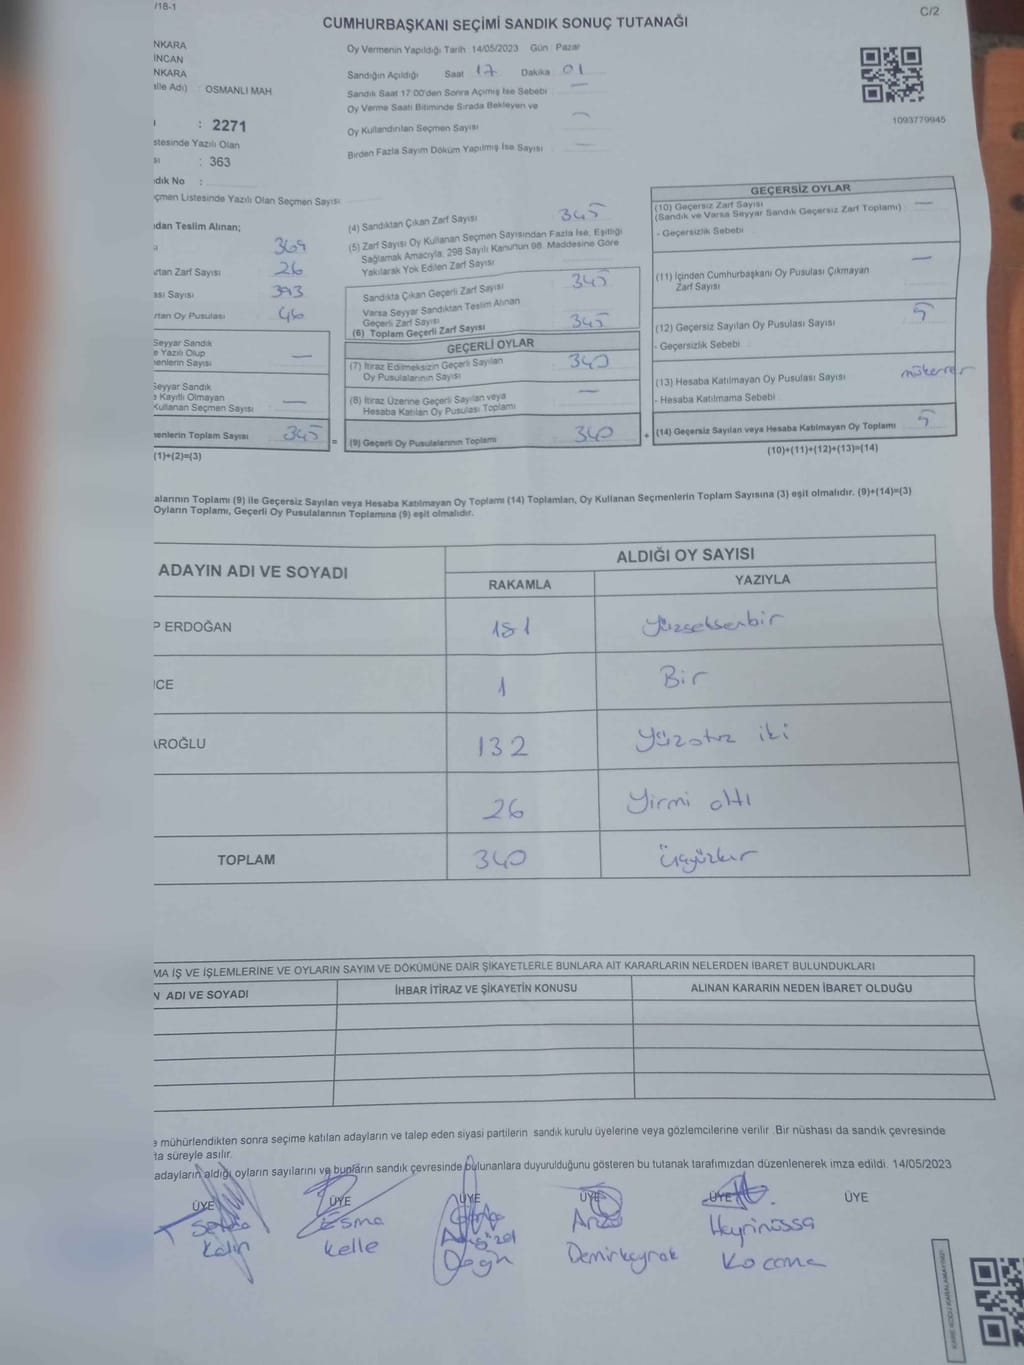 /18-1
C/2
CUMHURBAŞKANI SEÇİMİ SANDIK SONUÇ TUTANAĞI
NKARA
İNCAN
NKARA
alle Adı) : OSMANLI MAH.
: 2271
stesinde Yazılı Olan
sı : 363
dık No :
çmen Listesinde Yazılı Olan Seçmen Sayısı
Oy Vermenin Yapıldığı Tarih 14/05/2023 Gün Pazar
Sandığın Açıldığı Saat 17 Dakika 01
Sandık Saat 17:00'den Sonra Açılmış İse Sebebi
Oy Verme Saati Bitiminde Sırada Bekleyen ve
Oy Kullandırılan Seçmen Sayısı
Birden Fazla Sayım Döküm Yapılmış İse Sayısı
1093779945
ndan Teslim Alınan;
369
rtan Zarf Sayısı 26
ası Sayısı 393
rtan Oy Pusulası
Seyyar Sandık
e Yazılı Olup
menlerin Sayısı —
Seyyar Sandık
e Kayıtlı Olmayan
Kullanan Seçmen Sayısı —
menlerin Toplam Sayısı 345 =
(1)+(2)=(3)
(4) Sandıktan Çıkan Zarf Sayısı 345
(5) Zarf Sayısı Oy Kullanan Seçmen Sayısından Fazla İse, Eşitliği
Sağlamak Amacıyla, 298 Sayılı Kanun'un 98. Maddesine Göre
Yakılarak Yok Edilen Zarf Sayısı
Sandıkta Çıkan Geçerli Zarf Sayısı 345
Varsa Seyyar Sandıktan Teslim Alınan
Geçerli Zarf Sayısı
(6) Toplam Geçerli Zarf Sayısı 345
GEÇERLİ OYLAR
(7) İtiraz Edilmeksizin Geçerli Sayılan
Oy Pusulalarının Sayısı 340
(8) İtiraz Üzerine Geçerli Sayılan veya
Hesaba Katılan Oy Pusulası Toplamı —
(9) Geçerli Oy Pusulalarının Toplamı 340 +
GEÇERSİZ OYLAR
(10) Geçersiz Zarf Sayısı —
(Sandık ve Varsa Seyyar Sandık Geçersiz Zarf Toplamı)
- Geçersizlik Sebebi
(11) İçinden Cumhurbaşkanı Oy Pusulası Çıkmayan
Zarf Sayısı —
(12) Geçersiz Sayılan Oy Pusulası Sayısı 5
- Geçersizlik Sebebi
(13) Hesaba Katılmayan Oy Pusulası Sayısı mükerrer
- Hesaba Katılmama Sebebi
(14) Geçersiz Sayılan veya Hesaba Katılmayan Oy Toplamı 5
(10)+(11)+(12)+(13)=(14)
alarının Toplamı (9) ile Geçersiz Sayılan veya Hesaba Katılmayan Oy Toplamı (14) Toplamları, Oy Kullanan Seçmenlerin Toplam Sayısına (3) eşit olmalıdır. (9)+(14)=(3)
Oyların Toplamı, Geçerli Oy Pusulalarının Toplamına (9) eşit olmalıdır.
ADAYIN ADI VE SOYADI
ALDIĞI OY SAYISI
RAKAMLA YAZIYLA
P ERDOĞAN 181 Yüzseksenbir
NCE 1 Bir
AROĞLU 132 Yüzotuz iki
26 Yirmi altı
TOPLAM 340 Üçyüzkır
MA İŞ VE İŞLEMLERİNE VE OYLARIN SAYIM VE DÖKÜMÜNE DAİR ŞİKAYETLERLE BUNLARA AİT KARARLARIN NELERDEN İBARET BULUNDUKLARI
N ADI VE SOYADI İHBAR İTİRAZ VE ŞİKAYETİN KONUSU ALINAN KARARIN NEDEN İBARET OLDUĞU
e mühürlendikten sonra seçime katılan adayların ve talep eden siyasi partilerin sandık kurulu üyelerine veya gözlemcilerine verilir. Bir nüshası da sandık çevresinde
ta süreyle asılır.
adayların aldığı oyların sayılarını ve bunların sandık çevresinde bulunanlara duyurulduğunu gösteren bu tutanak tarafımızdan düzenlenerek imza edildi. 14/05/2023
ÜYE ÜYE ÜYE ÜYE ÜYE ÜYE
Esma Arzu Hayrinüssa
Kalın Kelle Demirkayrak Kocama